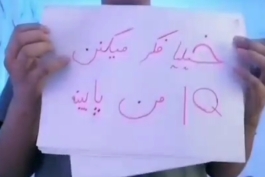 خیلیا فکر میکنن
IQ من پایینه